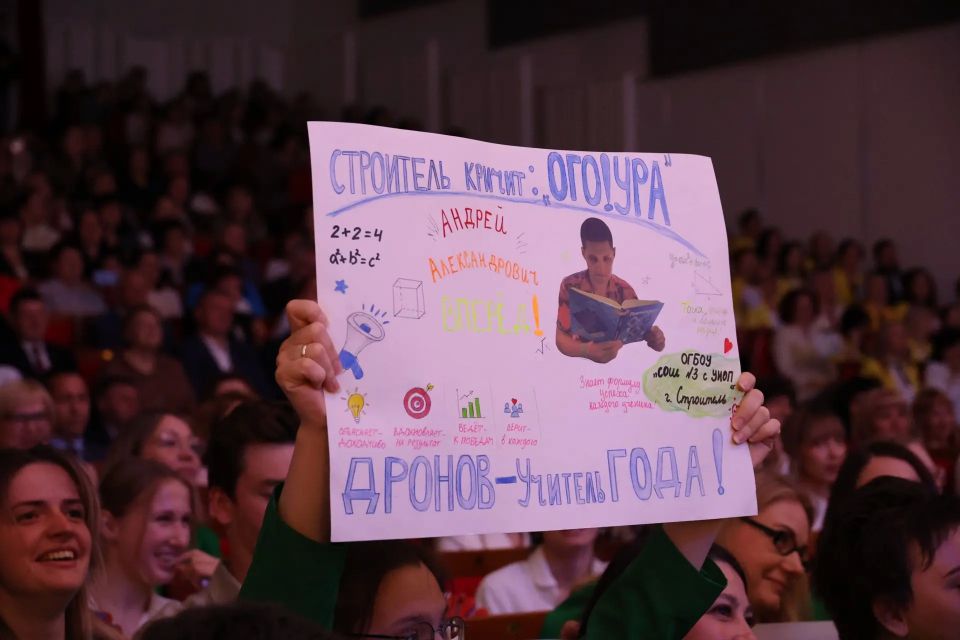 СТРОИТЕЛЬ КРИЧИТ: „ОГО!УРА"
2+2=4
a²+b²=c²
АНДРЕЙ
АЛЕКСАНДРОВИЧ
ВПЕРЁД!
Знает формулу
успеха
каждого ученика
ОГБОУ
"СОШ №3 С УИОП"
г. Строитель
ОБЪЯСНЯЕТ-
ДОХОДЧИВО
ВДОХНОВЛЯЕТ-
НА РЕЗУЛЬТАТ
ВЕДЁТ-
К ПОБЕДАМ
ВЕРИТ-
В КАЖДОГО
ДРОНОВ-УЧИТЕЛЬ ГОДА!